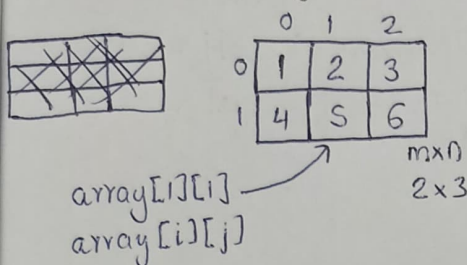 0 1 2
0 1 2 3
1 4 5 6
m×n
array[1][1] 2×3
array[i][j]